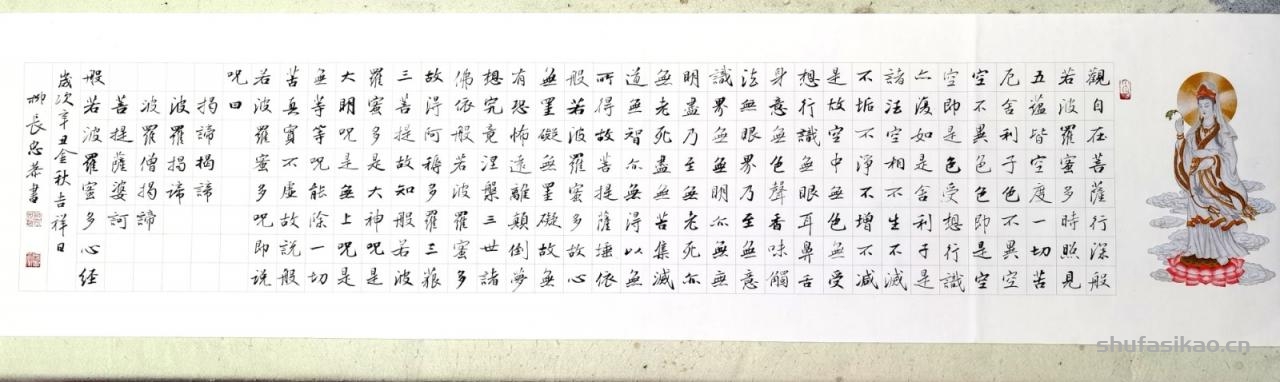 觀自在菩薩行深般
若波羅蜜多時照見
五蘊皆空度一切苦
厄舍利子色不異空
空不異色色即是空
空即是色受想行識
亦復如是舍利子是
諸法空相不生不滅
不垢不淨不增不減
是故空中無色無受
想行識無眼耳鼻舌
身意無色聲香味觸
法無眼界乃至無意
識界無無明亦無無
明盡乃至無老死亦
無老死盡無苦集滅
道無智亦無得以無
所得故菩提薩埵依
般若波羅蜜多故心
無罣礙無罣礙故無
有恐怖遠離顛倒夢
想究竟涅槃三世諸
佛依般若波羅蜜多
故得阿耨多羅三藐
三菩提故知般若波
羅蜜多是大神呪是
大明呪是無上呪是
無等等呪能除一切
苦真實不虛故說般
若波羅蜜多呪即說
呪曰
揭諦揭諦
波羅揭諦
波羅僧揭諦
菩提薩婆訶
般若波羅蜜多心經
歲次辛丑金秋吉祥日
柳長忠恭書
shufasikao.cn